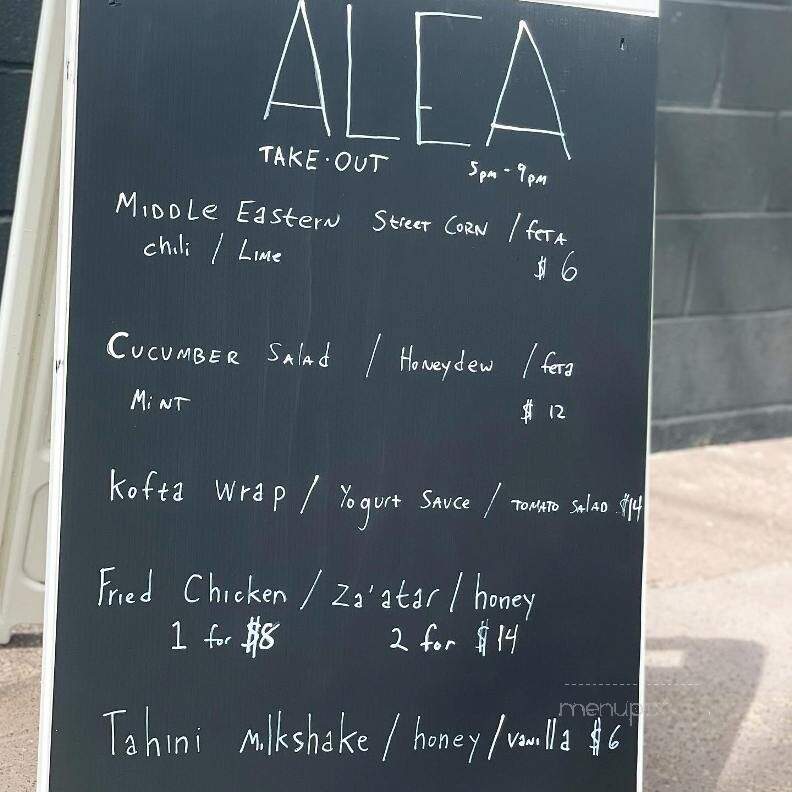 ALEA
TAKE·OUT 5pm - 9pm
MIDDLE EASTERN STREET CORN / FETA
chili / LIME $6
CUCUMBER SALAD / HONEYDEW / feta
MINT $12
Kofta Wrap / Yogurt SAUCE / TOMATO SALAD $14
Fried Chicken / Za'atar / honey
1 for $8 2 for $14
Tahini Milkshake / honey / Vanilla $6
menupix